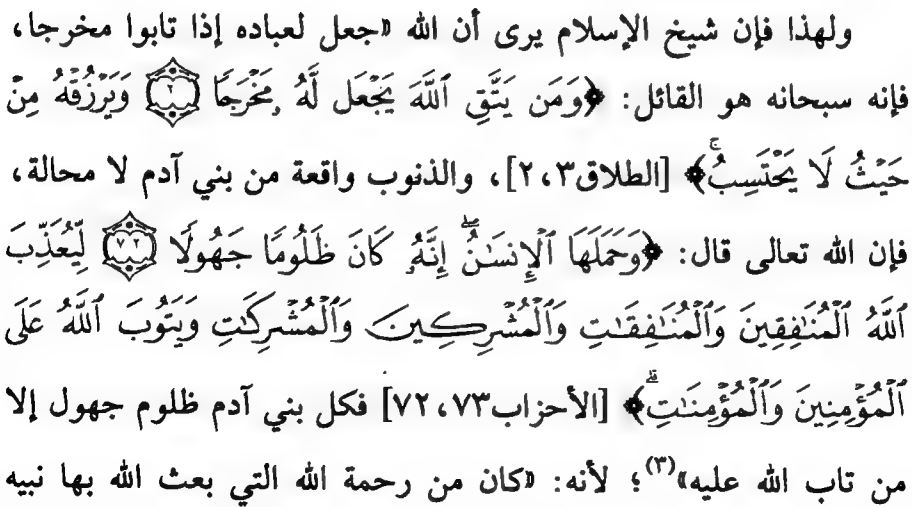 ولهذا فإن شيخ الإسلام يرى أن الله «جعل لعباده إذا تابوا مخرجا،
فإنه سبحانه هو القائل: ﴿وَمَن يَتَّقِ ٱللَّهَ يَجْعَل لَّهُۥ مَخْرَجًا ۝٢ وَيَرْزُقْهُ مِنْ
حَيْثُ لَا يَحْتَسِبُۚ﴾ [الطلاق٢،٣]، والذنوب واقعة من بني آدم لا محالة،
فإن الله تعالى قال: ﴿وَحَمَلَهَا ٱلْإِنسَـٰنُۖ إِنَّهُۥ كَانَ ظَلُومًا جَهُولًا ۝٧٢ لِّيُعَذِّبَ
ٱللَّهُ ٱلْمُنَـٰفِقِينَ وَٱلْمُنَـٰفِقَـٰتِ وَٱلْمُشْرِكِينَ وَٱلْمُشْرِكَـٰتِ وَيَتُوبَ ٱللَّهُ عَلَى
ٱلْمُؤْمِنِينَ وَٱلْمُؤْمِنَـٰتِۗ﴾ [الأحزاب٧٢،٧٣] فكل بني آدم ظلوم جهول إلا
من تاب الله عليه»(٣)؛ لأنه: «كان من رحمة الله التي بعث الله بها نبيه